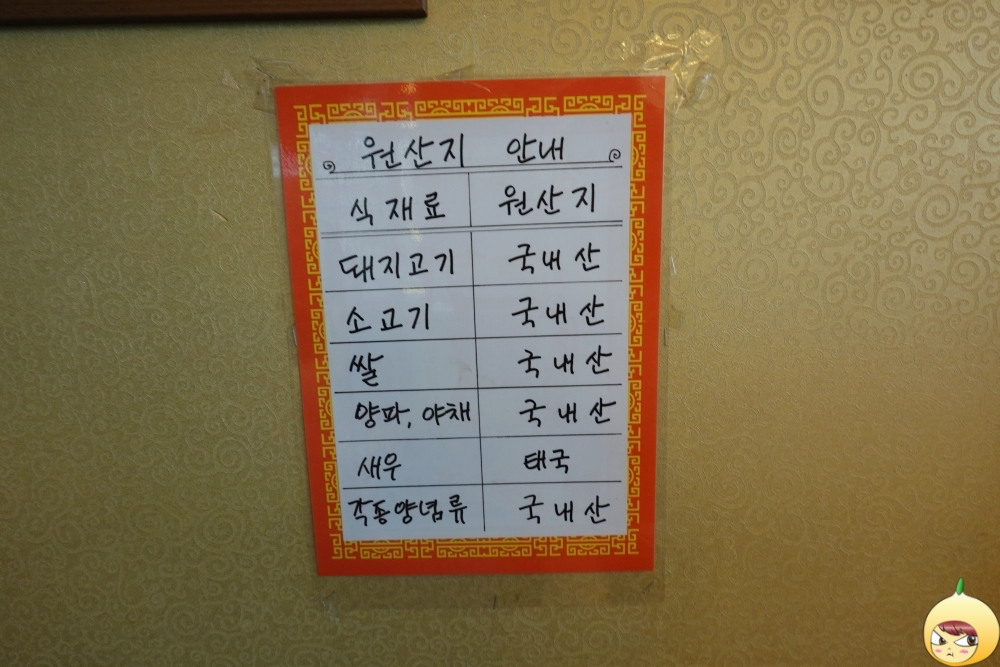 원산지 안내
식재료 원산지
돼지고기 국내산
소고기 국내산
쌀 국내산
양파, 야채 국내산
새우 태국
각종양념류 국내산